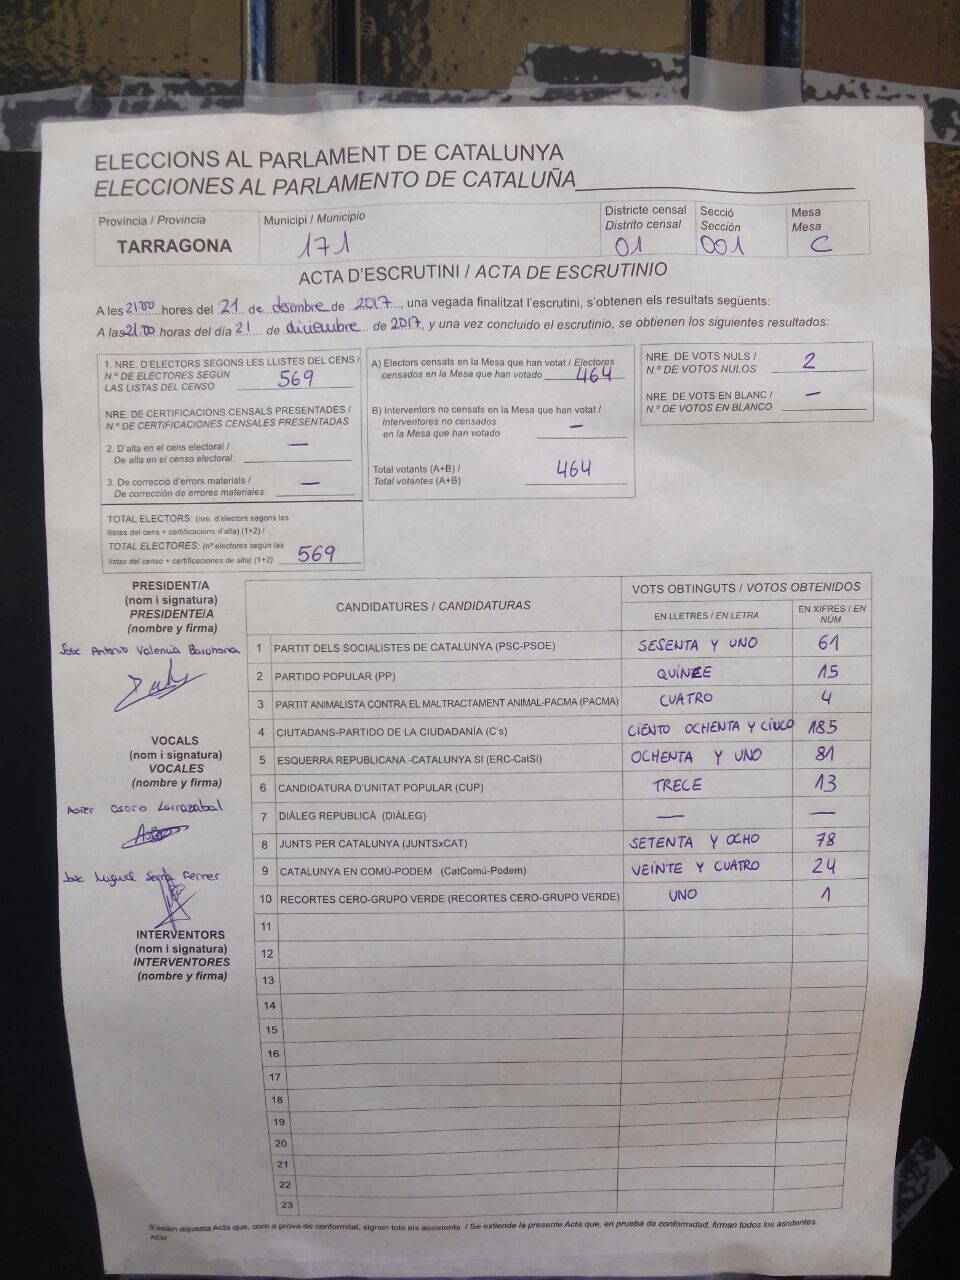 ELECCIONS AL PARLAMENT DE CATALUNYA
ELECCIONES AL PARLAMENTO DE CATALUÑA
Província / Provincia Municipi / Municipio Districte censal Secció Mesa
Distrito censal Sección Mesa
TARRAGONA 171 01 001 C
ACTA D'ESCRUTINI / ACTA DE ESCRUTINIO
A les 21'00 hores del 21 de desembre de 2017, una vegada finalitzat l'escrutini, s'obtenen els resultats següents:
A las 21'00 horas del día 21 de diciembre de 2017, y una vez concluido el escrutinio, se obtienen los siguientes resultados:
1. NRE. D'ELECTORS SEGONS LES LLISTES DEL CENS /
N.º DE ELECTORES SEGÚN
LAS LISTAS DEL CENSO 569
NRE. DE CERTIFICACIONS CENSALS PRESENTADES /
N.º DE CERTIFICACIONES CENSALES PRESENTADAS
2. D'alta en el cens electoral /
De alta en el censo electoral: —
3. De correcció d'errors materials /
De corrección de errores materiales: —
TOTAL ELECTORS: (nre. d'electors segons les
llistes del cens + certificacions d'alta) (1+2) /
TOTAL ELECTORES: (nº electores según las
listas del censo + certificaciones de alta) (1+2) 569
A) Electors censats en la Mesa que han votat / Electores
censados en la Mesa que han votado 464
B) Interventors no censats en la Mesa que han votat /
Interventores no censados
en la Mesa que han votado —
Total votants (A+B) /
Total votantes (A+B) 464
NRE. DE VOTS NULS /
N.º DE VOTOS NULOS 2
NRE. DE VOTS EN BLANC /
N.º DE VOTOS EN BLANCO —
PRESIDENT/A
(nom i signatura)
PRESIDENTE/A
(nombre y firma)
Jose Antonio Valencia Barahona
VOCALS
(nom i signatura)
VOCALES
(nombre y firma)
Asier Osoro Larrazabal
Jose Miguel Serra Ferrer
INTERVENTORS
(nom i signatura)
INTERVENTORES
(nombre y firma)
CANDIDATURES / CANDIDATURAS VOTS OBTINGUTS / VOTOS OBTENIDOS
EN LLETRES / EN LETRA EN XIFRES / EN NÚM.
1 PARTIT DELS SOCIALISTES DE CATALUNYA (PSC-PSOE) SESENTA Y UNO 61
2 PARTIDO POPULAR (PP) QUINZE 15
3 PARTIT ANIMALISTA CONTRA EL MALTRACTAMENT ANIMAL-PACMA (PACMA) CUATRO 4
4 CIUTADANS-PARTIDO DE LA CIUDADANÍA (C's) CIENTO OCHENTA Y CINCO 185
5 ESQUERRA REPUBLICANA -CATALUNYA SI (ERC-CatSí) OCHENTA Y UNO 81
6 CANDIDATURA D'UNITAT POPULAR (CUP) TRECE 13
7 DIÀLEG REPUBLICÀ (DIÀLEG) — —
8 JUNTS PER CATALUNYA (JUNTSxCAT) SETENTA Y OCHO 78
9 CATALUNYA EN COMÚ-PODEM (CatComú-Podem) VEINTE Y CUATRO 24
10 RECORTES CERO-GRUPO VERDE (RECORTES CERO-GRUPO VERDE) UNO 1
11
12
13
14
15
16
17
18
19
20
21
22
23
S'estén aquesta Acta que, com a prova de conformitat, signen tots els assistents. / Se extiende la presente Acta que, en prueba de conformidad, firman todos los asistentes.
AEM